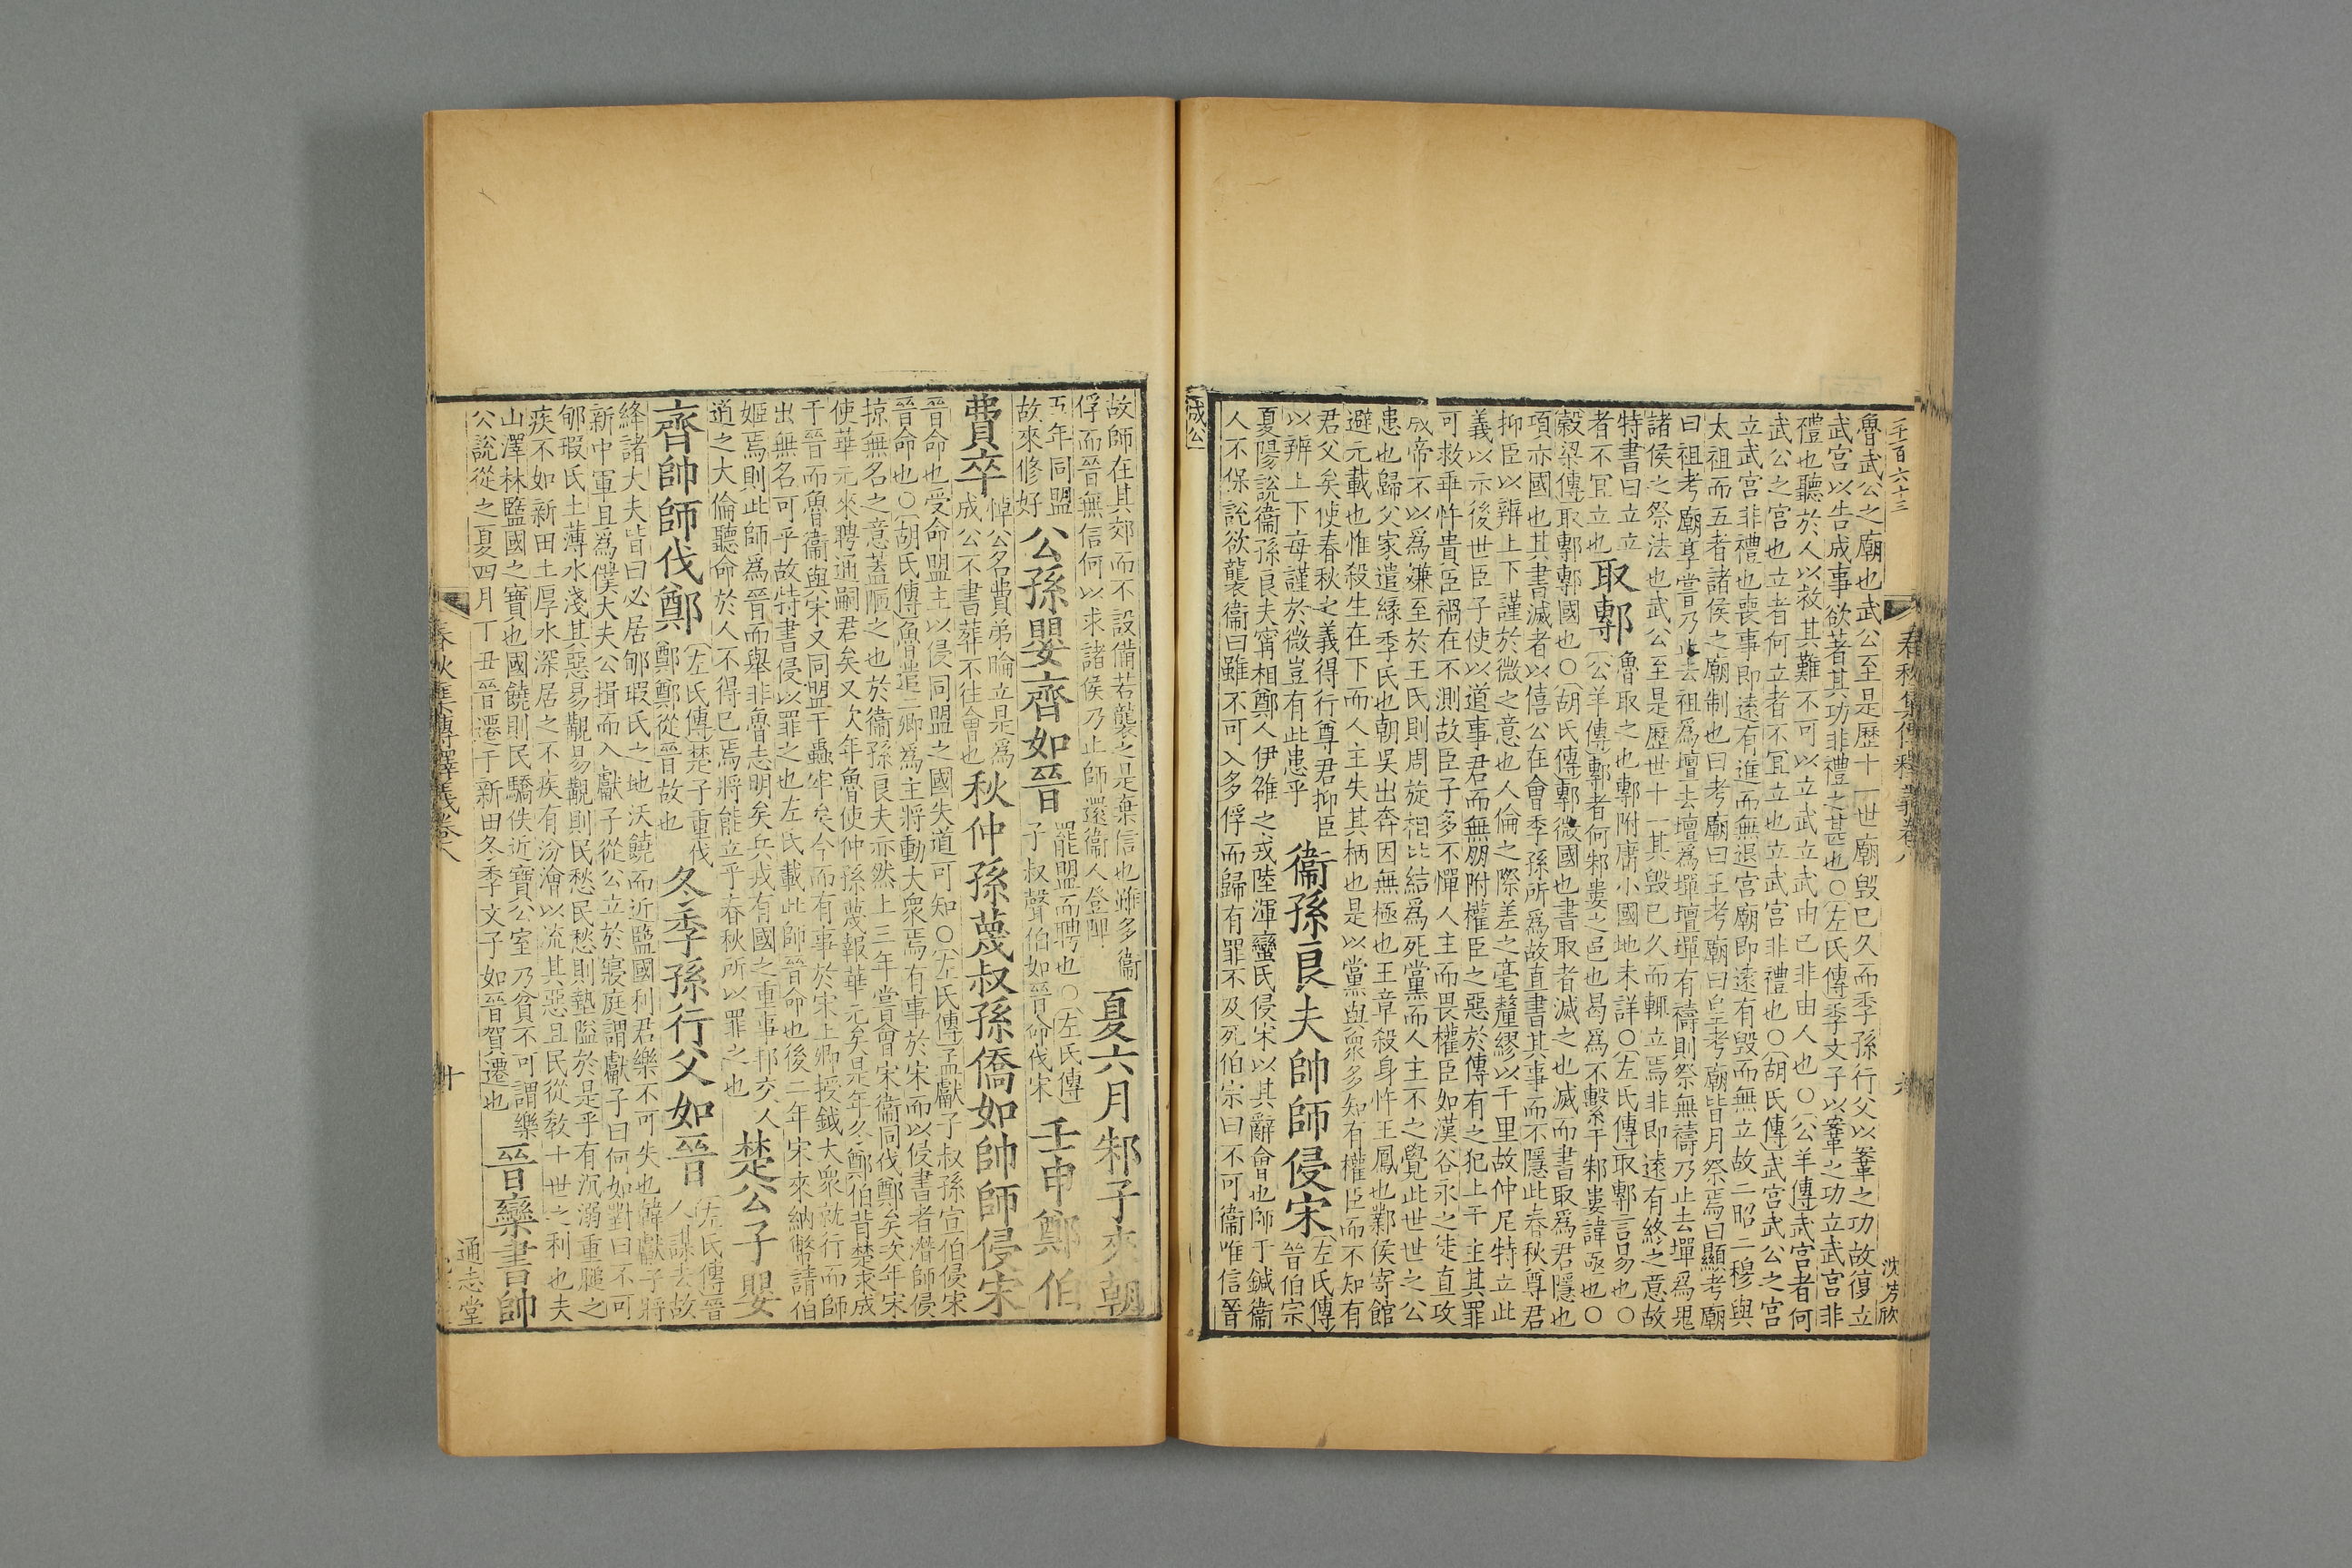 二千百六十三
春秋集傳釋義卷八
沈芳欣
魯武公之廟也武公至是歷十一世廟毀已久而季孫行父以鞌之功故復立
武宮以告成事欲著其功非禮之甚也○左氏傳季文子以鞌之功立武宮非
禮也聽於人以救其難不可以立武立武由己非由人也○公羊傳武宮者何
武公之宮也立者何立者不宜立也立武宮非禮也○胡氏傳武宮武公之宮
立武宮非禮也喪事即遠有進而無退宮廟即遠有毀而無立故二昭二穆與
太祖而五者諸侯之廟制也曰考廟曰王考廟曰皇考廟皆月祭焉曰顯考廟
曰祖考廟享嘗乃止去祖爲壇去壇爲墠壇墠有禱則祭無禱乃止去墠爲鬼
諸侯之祭法也武公至是歷世十一其毀已久而輒立焉非即遠有終之意故
特書曰立立者不宜立也
取鄟
魯取之也鄟附庸小國地未詳○左氏傳取鄟言易也○
公羊傳鄟者何邾婁之邑也曷爲不繫于邾婁諱亟也○
穀梁傳取鄟鄟國也○胡氏傳鄟微國也書取者滅之也滅而書取爲君隱也
項亦國也其書滅者以僖公在會季孫所爲故直書其事而不隱此春秋尊君
抑臣以辨上下謹於微之意也人倫之際差之毫釐繆以千里故仲尼特立此
義以示後世臣子使以道事君而無朋附權臣之惡於傳有之犯上干主其罪
可救乖忤貴臣禍在不測故臣子多不憚人主而畏權臣如漢谷永之徒直攻
成帝不以爲嫌至於王氏則周旋相比結爲死黨而人主不之覺此世世之公
患也歸父家遣緣季氏也朝吳出奔因無極也王章殺身忤王鳳也鄴侯寄館
避元載也惟殺生在下而人主失其柄也是以黨與衆多知有權臣而不知有
君父矣使春秋之義得行尊君抑臣
以辨上下每謹於微豈有此患乎
衞孫良夫帥師侵宋
左氏傳
晉伯宗
夏陽說衞孫良夫甯相鄭人伊雒之戎陸渾蠻氏侵宋以其辭會也師于鍼衞
人不保說欲襲衞曰雖不可入多俘而歸有罪不及死伯宗曰不可衞唯信晉
成公
故師在其郊而不設備若襲之是棄信也雖多衞
俘而晉無信何以求諸侯乃止師還衞人登陴
夏六月邾子來朝
五年同盟
故來修好
公孫嬰齊如晉
罷盟而聘也○左氏傳
子叔聲伯如晉命伐宋
壬申鄭伯
費卒
悼公名費弟睔立是爲
成公不書葬不往會也
秋仲孫蔑叔孫僑如帥師侵宋
晉命也受命盟主以侵同盟之國失道可知○左氏傳孟獻子叔孫宣伯侵宋
晉命也○胡氏傳魯遣二卿爲主將動大衆焉有事於宋而以侵書者潛師侵
掠無名之意蓋陋之也於衞孫良夫亦然上三年嘗會宋衞同伐鄭矣次年宋
使華元來聘通嗣君矣又次年魯使仲孫蔑報華元矣是年冬鄭伯背楚求成
于晉而魯衞與宋又同盟于蟲牢矣今而有事於宋上卿授鉞大衆就行而師
出無名可乎故特書侵以罪之也左氏載此師晉命也後二年宋來納幣請伯
姬焉則此師爲晉而舉非魯志明矣兵戎有國之重事邦交人
道之大倫聽命於人不得已焉將能立乎春秋所以罪之也
楚公子嬰
齊帥師伐鄭
左氏傳楚子重伐
鄭鄭從晉故也
冬季孫行父如晉
左氏傳晉
人謀去故
絳諸大夫皆曰必居郇瑕氏之地沃饒而近盬國利君樂不可失也韓獻子將
新中軍且爲僕大夫公揖而入獻子從公立於寢庭謂獻子曰何如對曰不可
郇瑕氏土薄水淺其惡易覯易覯則民愁民愁則墊隘於是乎有沉溺重膇之
疾不如新田土厚水深居之不疾有汾澮以流其惡且民從敎十世之利也夫
山澤林盬國之寶也國饒則民驕佚近寶公室乃貧不可謂樂
公說從之夏四月丁丑晉遷于新田冬季文子如晉賀遷也
晉欒書帥
春秋集傳釋義卷八
十
通志堂